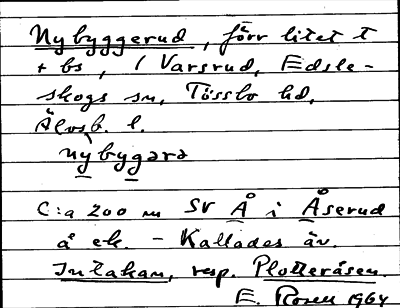 Nybyggerud, förr litet t
+ bs, i Varsrud, Edsle-
skogs sn, Tössbo hd,
Älvsb. l.
nybygara
C:a 200 m SV Å i Åserud
å ek. - Kallades äv.
Intakan, resp. Plotteråsen.
E. Rosell 1964